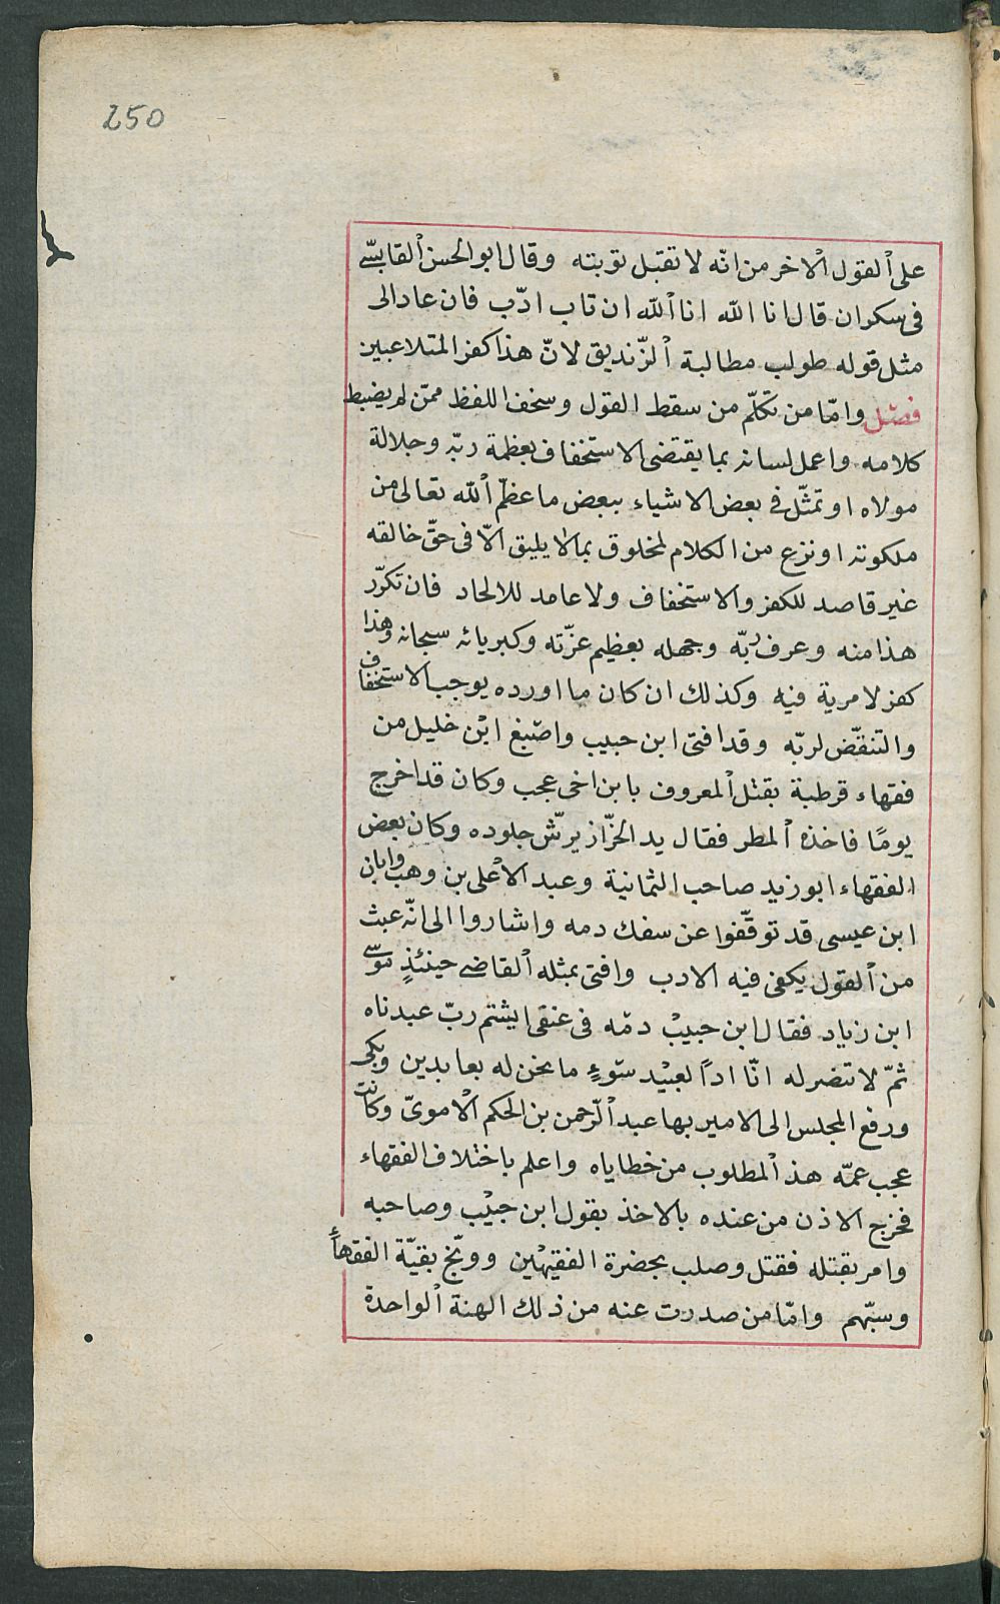 250
على ٱلقول ٱلاخر من انّه لا تقبل توبته وقال ابو الحسن ٱلقابسّے
فى سكران قال انا الله انا ٱلله ان تاب ادّب فان عاد الى
مثل قوله طولب مطالبة ٱلزّنديق لانّ هذا كفر المتلاعبين
فصل وامّا من تكلّم من سقط القول وسخف اللفظ ممّن لم يضبط
كلامه واعمل لسانه بما يقتضى الاستخفاف بعظمة ربّه وجلالة
مولاه او تمثّل فى بعض الاشياء ببعض ما عظّم ٱلله تعالى من
ملكوته او نزع من الكلام لمخلوق بما لا يليق الّا فى حقّ خالقه
غير قاصد للكفر والاستخفاف ولا عامد للالحاد فان تكرّر
هذا منه وعرف ربّه وجهله بعظيم عزّته وكبريائه سبحانه وهذا
كفر لا مرية فيه وكذلك ان كان ما اورده يوجب الاستخفاف
والتنقّض لربّه وقد افتى ابن حبيب واصبغ ابن خليل من
فقهاء قرطبة بقتل ٱلمعروف بابن اخى عجب وكان قد اخرج
يومًا فاخذه ٱلمطر فقال يد الخرّاز يرشّ جلوده وكان بعض
الفقهاء ابو زيد صاحب الثمانية وعبد الاعلى بن وهب وابان
ابن عيسى قد توقّفوا عن سفك دمه واشاروا الى انّه عبث
من ٱلقول يكفى فيه الادب وافتى بمثله ٱلقاضے حينئذٍ موسے
ابن زياد فقال ابن حبيب دمّه فى عنقى ايشتم ربّ عبدناه
ثمّ لا تنضر له انّا اذًا لعبيد سَوءٍ ما نحن له بعابدين وبكى
ورفع المجلس الى الامير بها عبد ٱلرّحمن بن الحكم الاموىّ وكانت
عجب عمّه هذ ٱلمطلوب من خطاياه واعلم باختلاف الفقهاء
فخرج الاذن من عنده بالاخذ بقول ابن حبيب وصاحبه
وامر بقتله فقتل وصلب بحضرة الفقيهين ووبّخ بقيّة الفقهأ
وسبّهم وامّا من صدرت عنه من ذلك الهنة ٱلواحدة